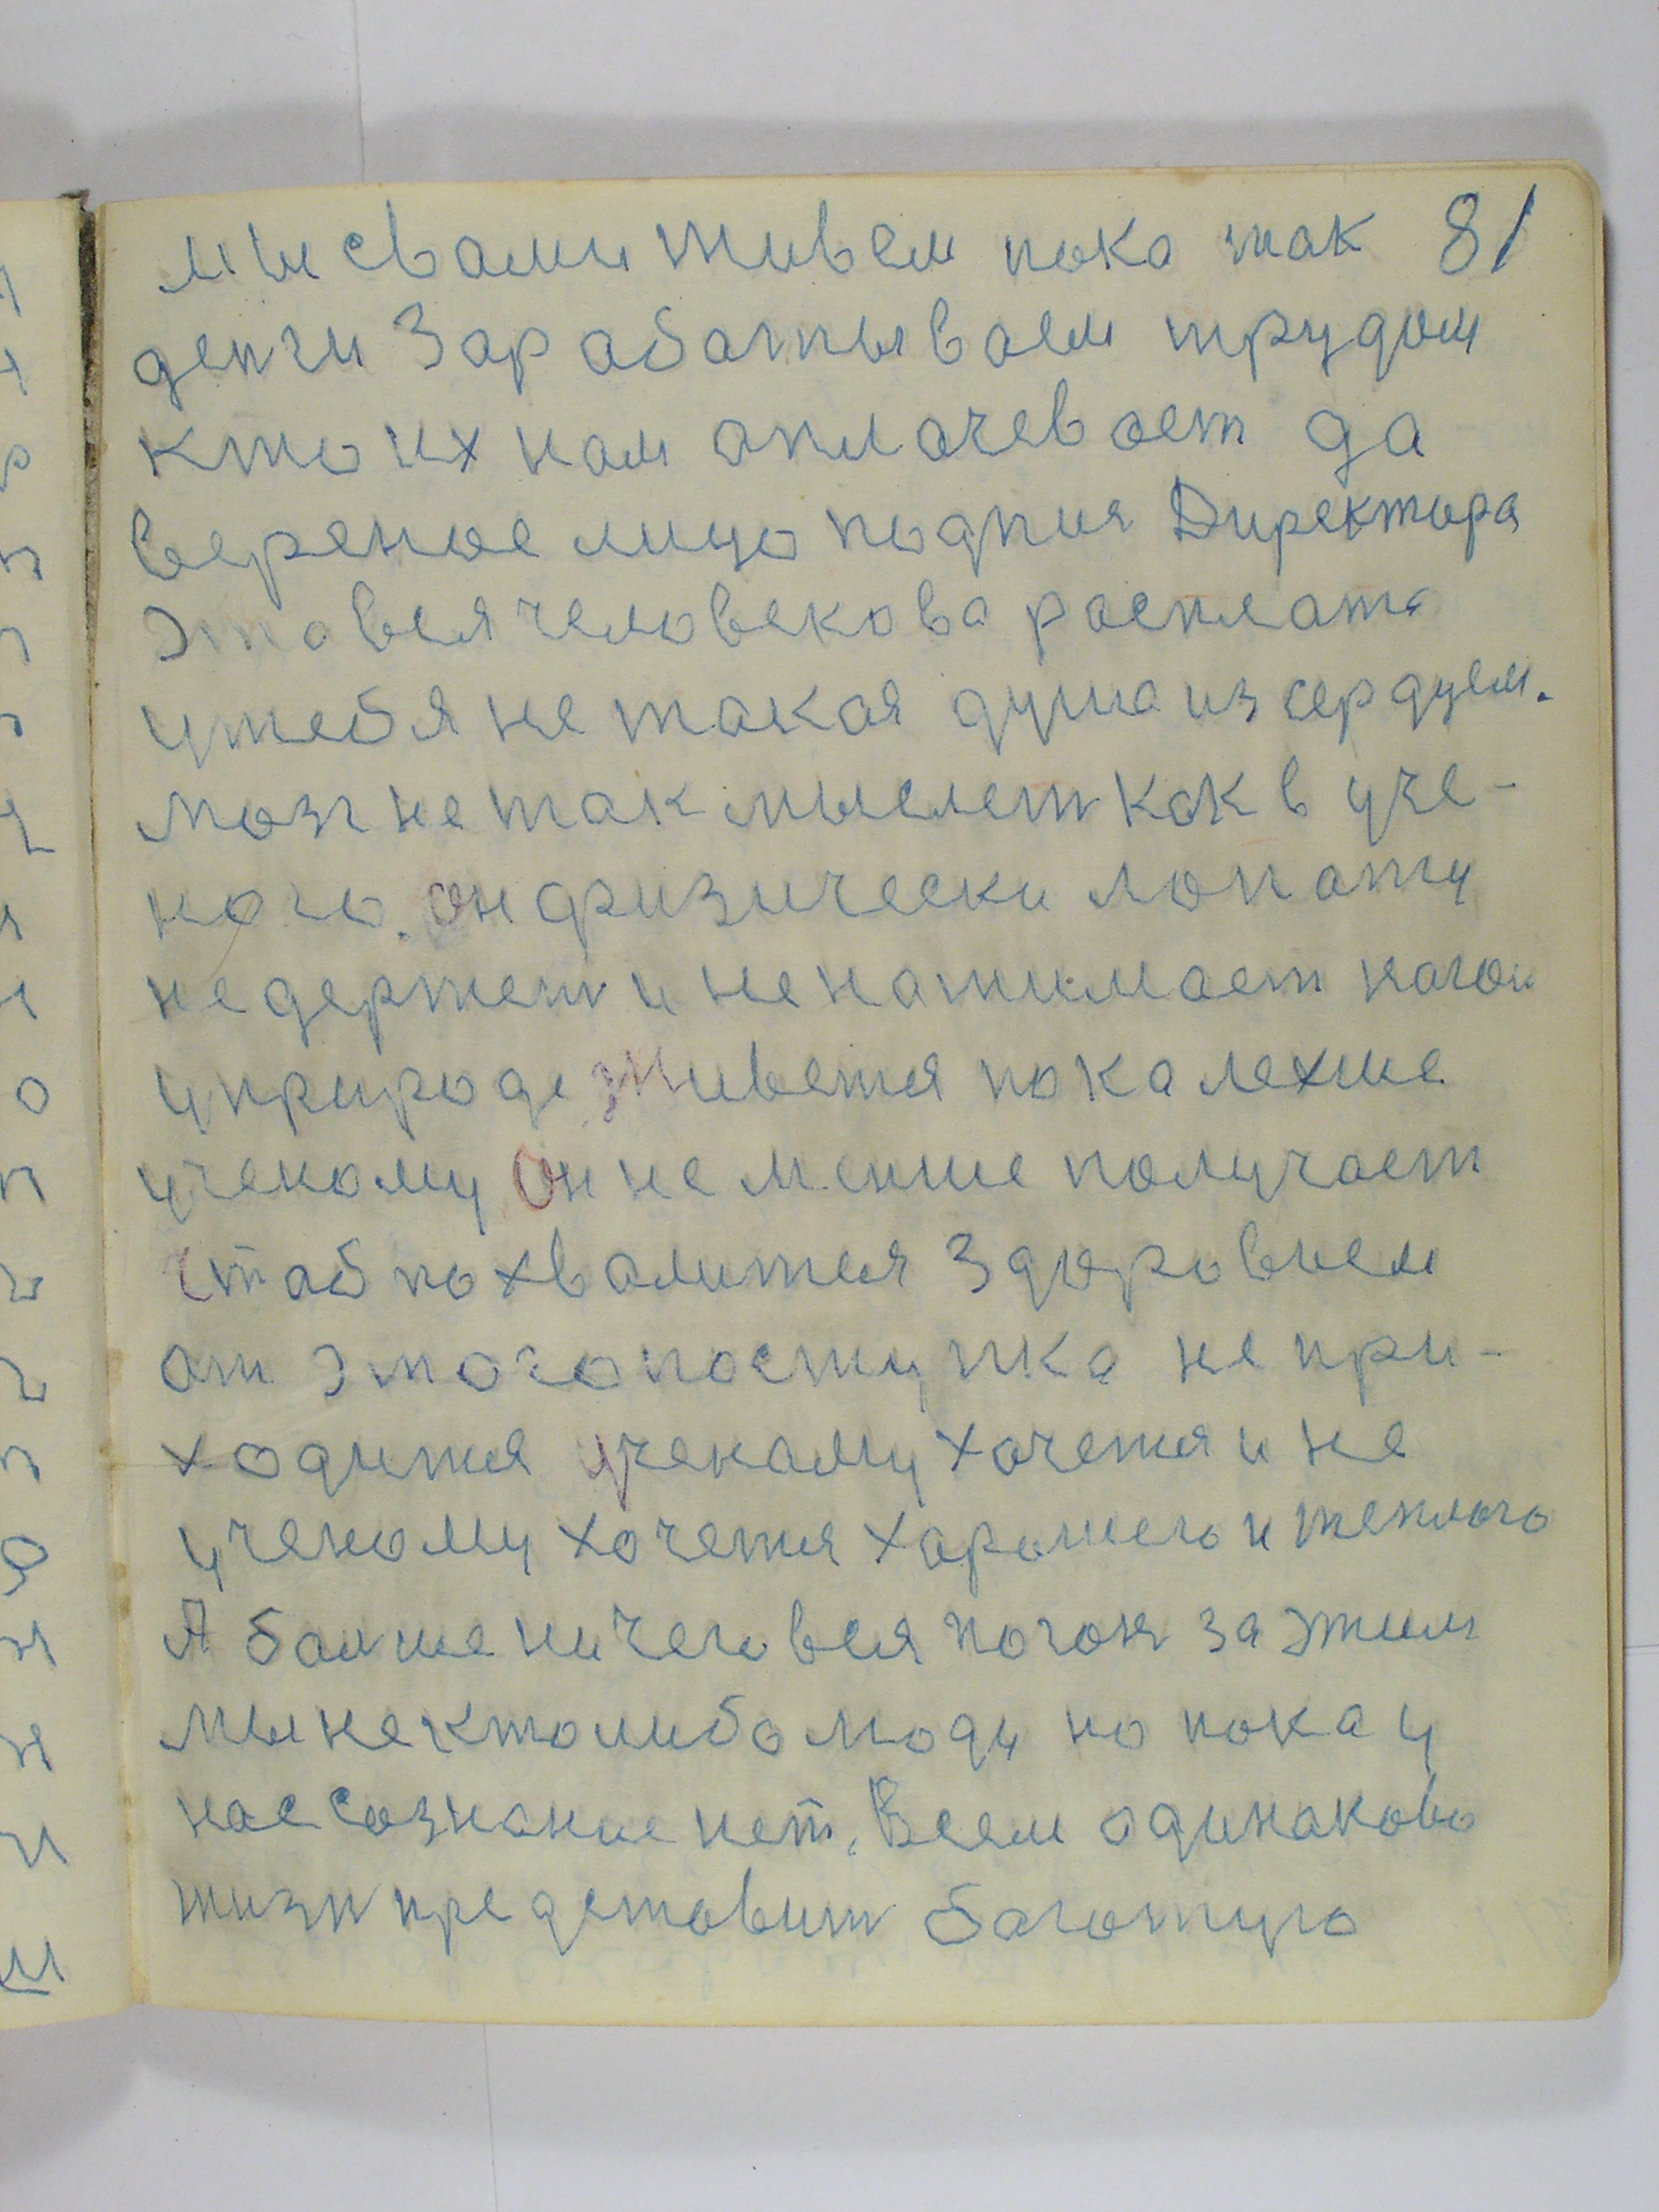 мы свами живем пока так 81
денги Зарабатываем трудом
кто их нам оплачевает да
вереное лицо подпия Директора
Это вся человекова расплата
у тебя не такая душа из сердцем.
мозг не так мыслет как в уче-
ного. он физически лопату
не держет и не нажимает ногой
у природе живется пока лехше
ученому Он не менше получает
Штаб похвалится Здоровием
от этого поступка не при-
ходится ученому хочется и не
ученому хочется харошего и теплого
А болше ничего вся погоня за этим
мы не кто либо люди но пока у
нас сознание нет. Всем одинаково
жизн представит богатую